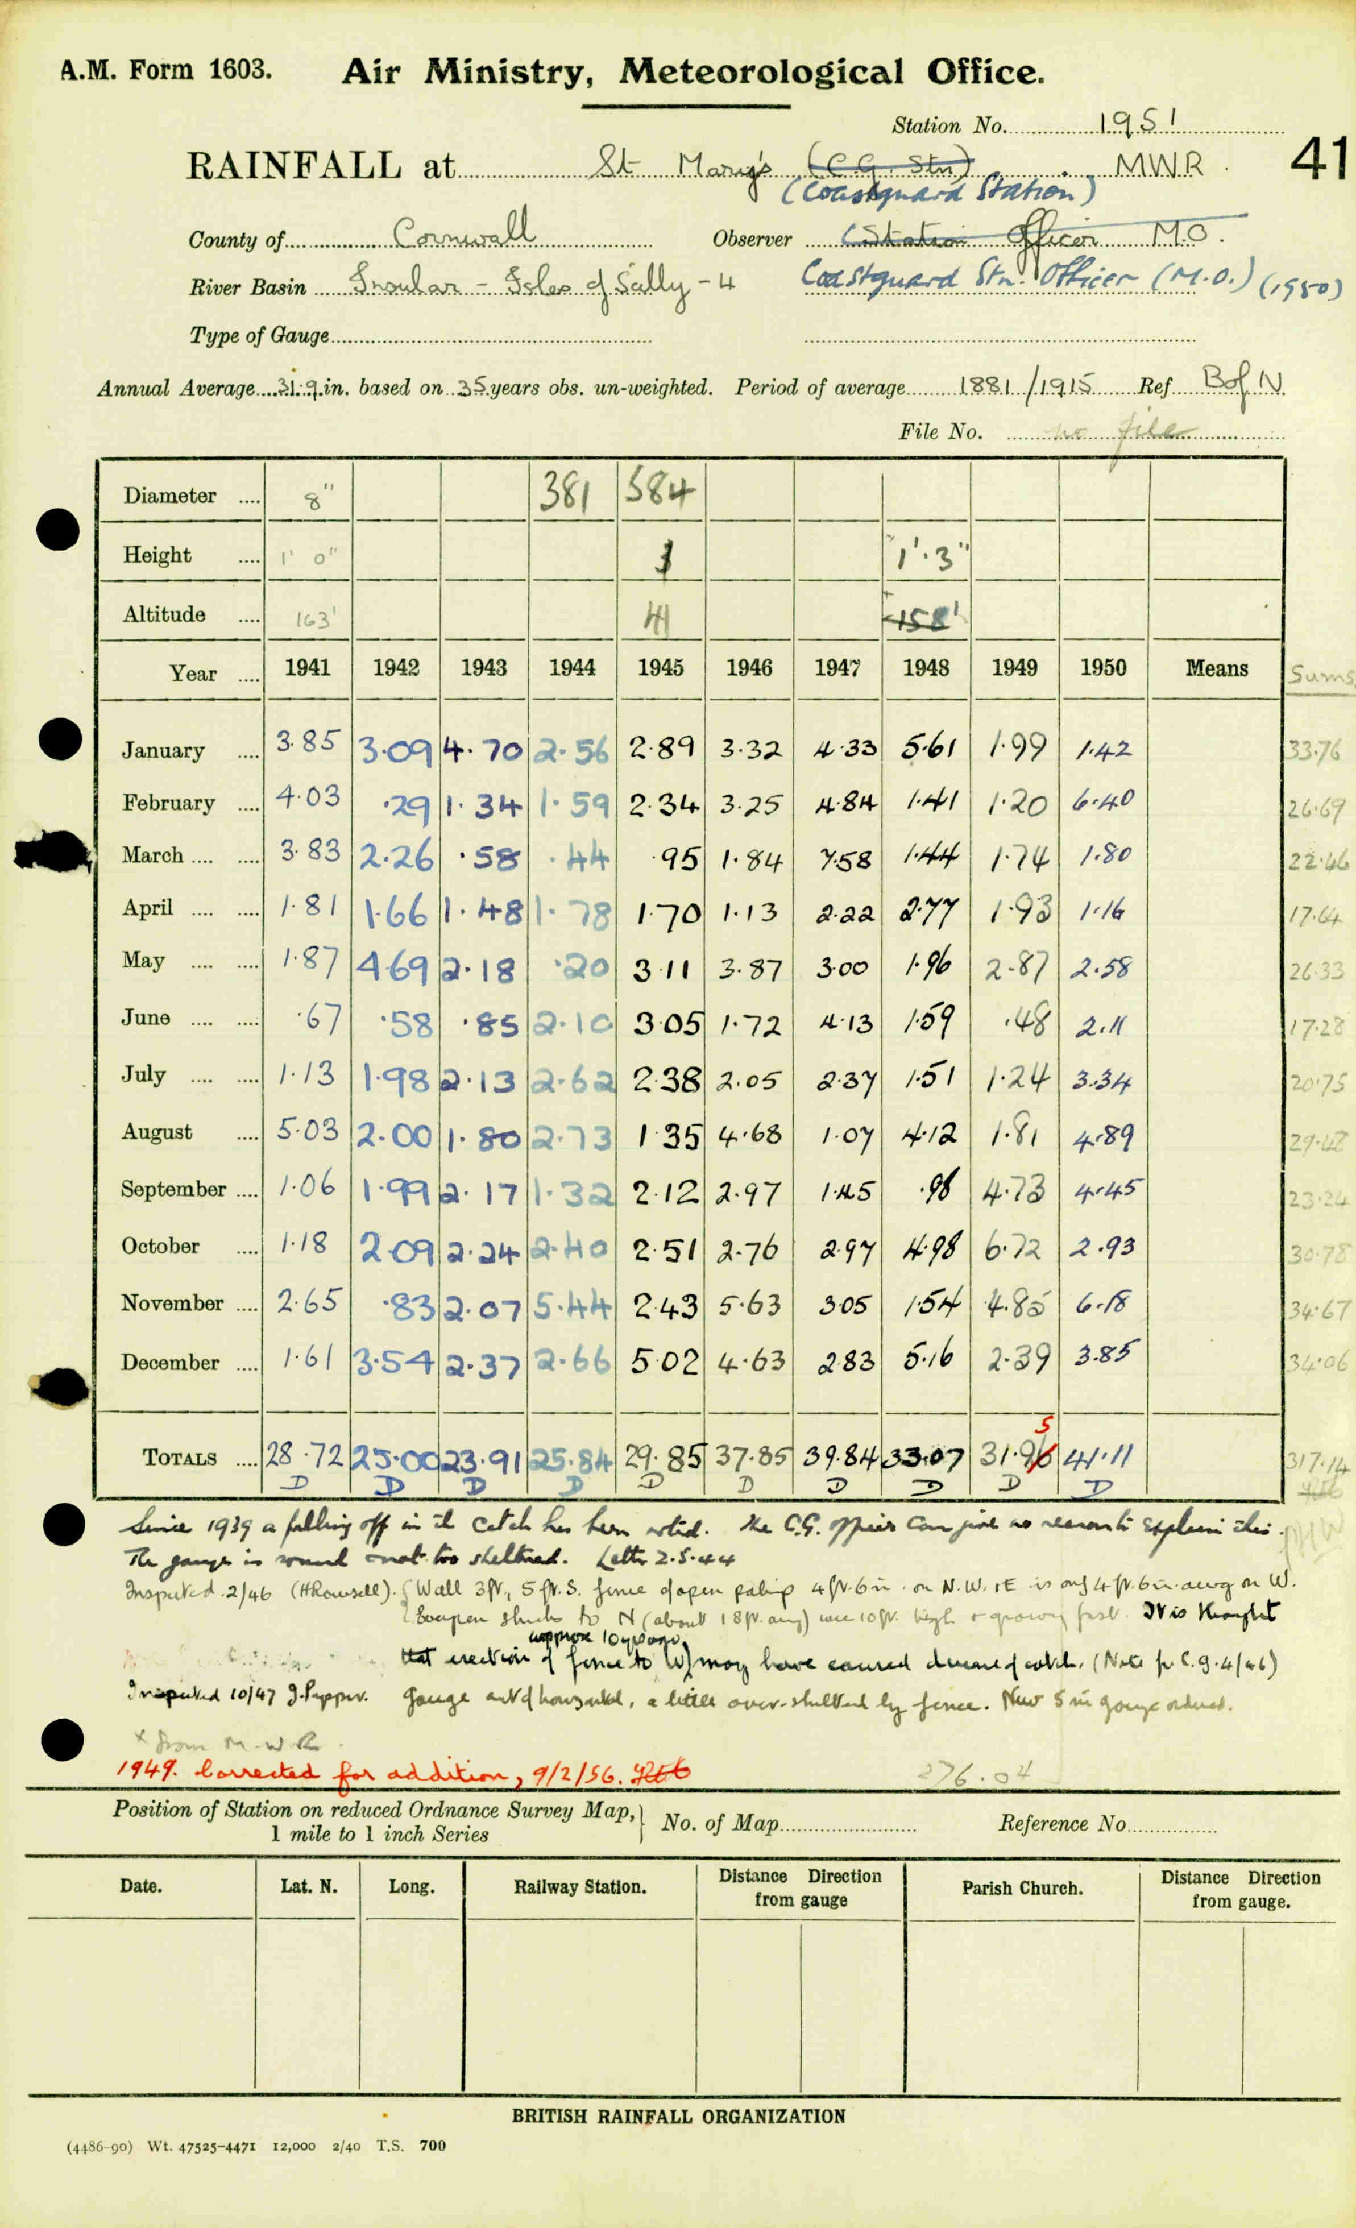 A.M. Form 1603. Air Ministry, Meteorological Office.
Station No. 1951
41
RAINFALL at St Mary's (C.G. Stn) MWR.
(Coastguard Station)
County of Cornwall Observer (Station Officer M.O.
River Basin Insular - Isles of Scilly - 4 Coastguard Stn. Officer (M.O.) (1950)
Type of Gauge
Annual Average 31.9 in. based on 35 years obs. un-weighted. Period of average 1881/1915 Ref B of N
File No. no file
Diameter .... 8" 381 584
Height .... 1' 0" 1'.3"
Altitude .... 163' 41 158'
Year .... 1941 1942 1943 1944 1945 1946 1947 1948 1949 1950 Means Sums
January .... 3.85 3.09 4.70 2.56 2.89 3.32 4.33 5.61 1.99 1.42 33.76
February .... 4.03 .29 1.34 1.59 2.34 3.25 4.84 1.41 1.20 6.40 26.69
March .... .... 3.83 2.26 .58 .44 .95 1.84 7.58 1.44 1.74 1.80 22.46
April .... .... 1.81 1.66 1.48 1.78 1.70 1.13 2.22 2.77 1.93 1.16 17.64
May .... .... 1.87 4.69 2.18 .20 3.11 3.87 3.00 1.96 2.87 2.58 26.33
June .... .... .67 .58 .85 2.10 3.05 1.72 4.13 1.59 .48 2.11 17.28
July .... .... 1.13 1.98 2.13 2.62 2.38 2.05 2.37 1.51 1.24 3.34 20.75
August .... 5.03 2.00 1.80 2.73 1.35 4.68 1.07 4.12 1.81 4.89 29.48
September .... 1.06 1.99 2.17 1.32 2.12 2.97 1.45 .98 4.73 4.45 23.24
October .... 1.18 2.09 2.24 2.40 2.51 2.76 2.97 4.98 6.72 2.93 30.78
November .... 2.65 .83 2.07 5.44 2.43 5.63 3.05 1.54 4.85 6.18 34.67
December .... 1.61 3.54 2.37 2.66 5.02 4.63 2.83 5.16 2.39 3.85 34.06
5
TOTALS .... 28.72 25.00 23.91 25.84 29.85 37.85 39.84 33.07 31.96 41.11 317.14
D D D D D D D D D D
Since 1939 a falling off in the catch has been noted. The C.G. officer can give no reason to explain this.
The gauge is sound & not too sheltered. Letter 2.5.44
Inspected 2/46 (H Rowsell). Wall 3ft., 5 ft. S. fence of open paling 4ft.6in. on N.W. & E is only 4ft.6in. away on W.
shrubs to N (about 18ft. away) were 10ft. high & growing fast. It is thought
approx 10 yrs ago
that erection of fence to W) may have caused decrease of catch. (Note fr C.G. 4/46)
Inspected 10/47 J. Pepper. Gauge out of horizontal, a little over-sheltered by fence. New 5 in gauge ordered.
x from M.W.R.
1949. Corrected for addition, 9/2/56.
276.04
Position of Station on reduced Ordnance Survey Map, 1 mile to 1 inch Series No. of Map Reference No
Date. Lat. N. Long. Railway Station. Distance Direction from gauge Parish Church. Distance Direction from gauge.
BRITISH RAINFALL ORGANIZATION
(4486-90) Wt. 47525-4471 12,000 2/40 T.S. 700